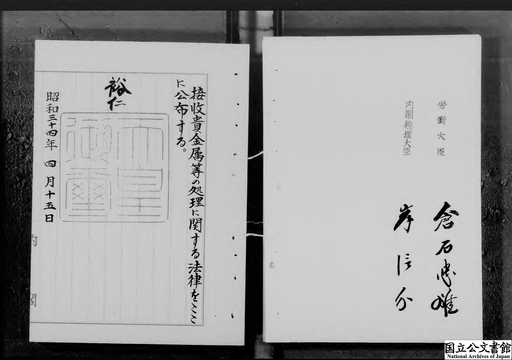 接收貴金属等の処理に関する法律をここ
に公布する。
裕仁
天皇
御璽
昭和三十四年四月十五日
内閣
労働大臣
倉石忠雄
内閣総理大臣
岸信介
国立公文書館
National Archives of Japan